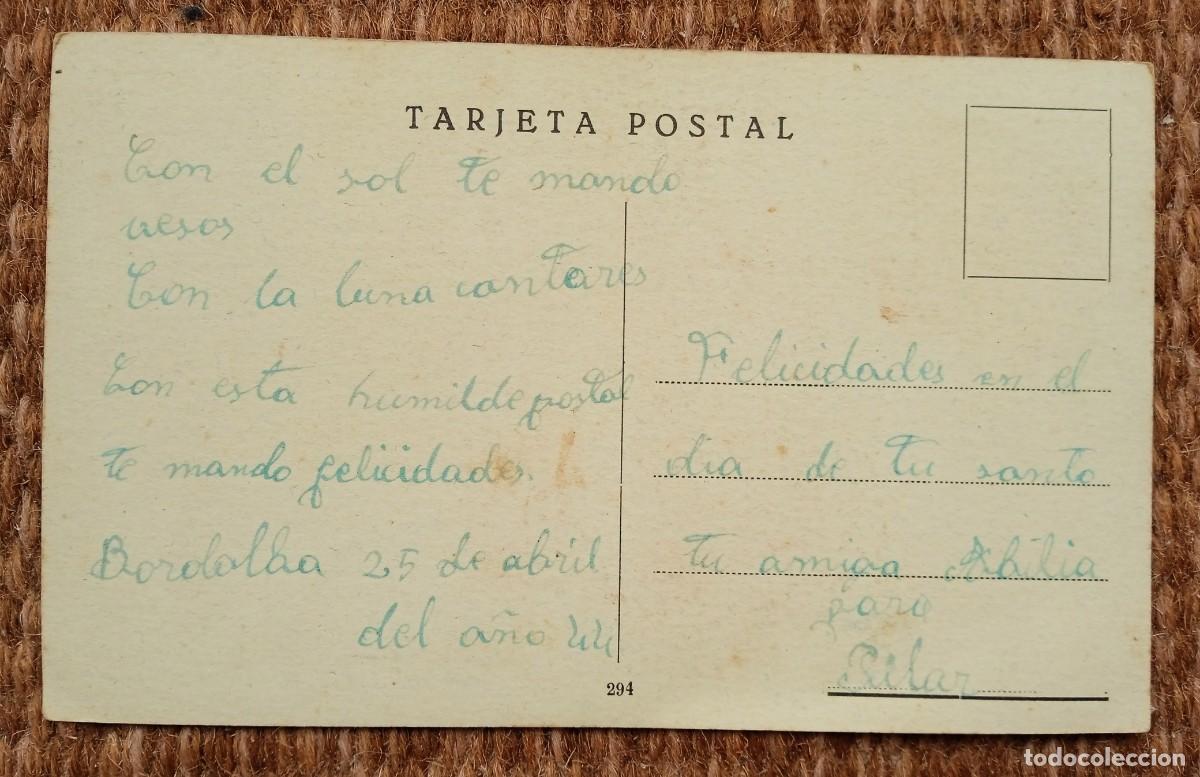 TARJETA POSTAL
Con el sol te mando
vesos
Con la luna cantares
Con esta humilde postal
te mando felicidades.
Bordalba 25 de abril
del año 44
Felicidades en el
dia de tu santo
tu amiga Abilia
para
Pilar
294
todocoleccion